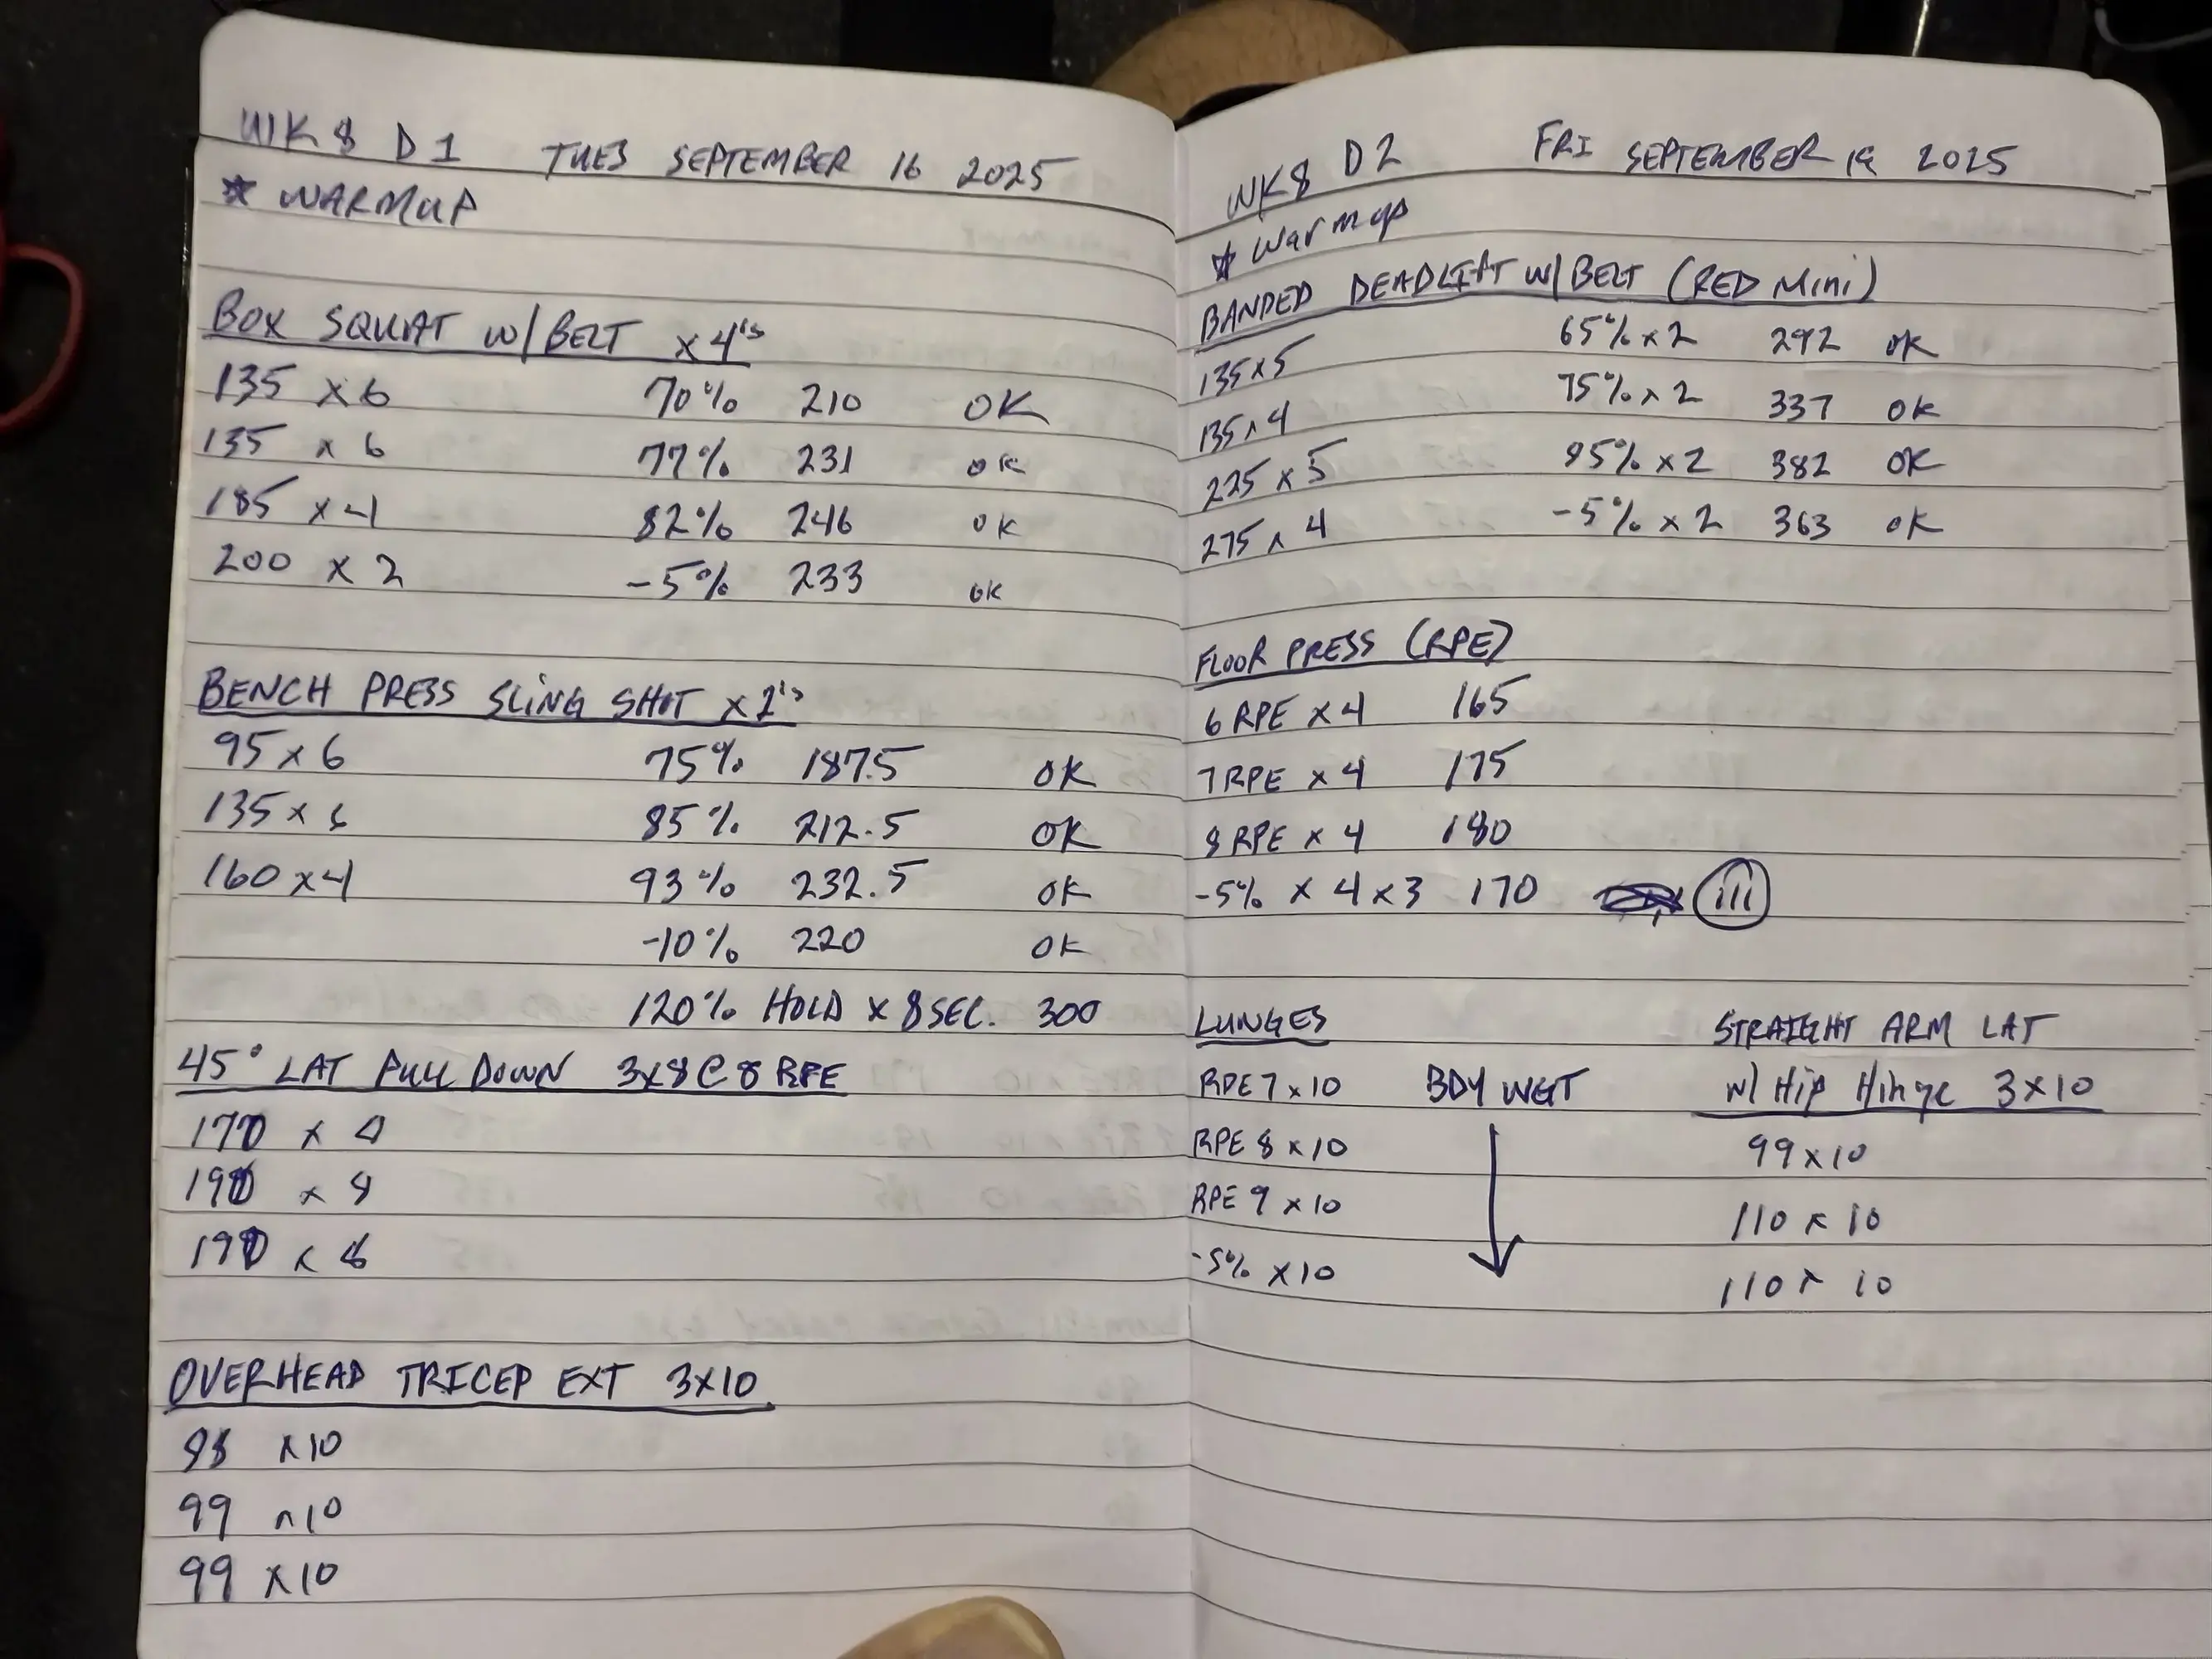 WK 8 D1 TUES SEPTEMBER 16 2025
* WARMUP
BOX SQUAT W/BELT x 4's
135 x 6 70% 210 OK
135 x 6 77% 231 OK
185 x 4 82% 246 OK
200 x 2 -5% 233 OK
BENCH PRESS SLING SHOT x 2's
95 x 6 75% 187.5 OK
135 x 6 85% 212.5 OK
160 x 4 93% 232.5 OK
-10% 220 OK
120% HOLD x 8 SEC. 300
45° LAT PULL DOWN 3x8 @ 8 RPE
170 x
190 x 8
190 x 8
OVERHEAD TRICEP EXT 3x10
x 10
99 x 10
99 x 10
WK8 D2 FRI SEPTEMBER 19 2025
* Warmup
BANDED DEADLIFT W/BELT (RED Mini)
135 x 5 65% x 2 292 OK
135 x 4 75% x 2 337 OK
225 x 5 85% x 2 382 OK
275 x 4 -5% x 2 363 OK
FLOOR PRESS (RPE)
6 RPE x 4 165
7 RPE x 4 175
8 RPE x 4 180
-5% x 4 x 3 170 III
LUNGES
RPE 7 x 10 BDY WGT
RPE 8 x 10
RPE 9 x 10
-5% x 10
STRAIGHT ARM LAT
W/ Hip Hinge 3x10
99 x 10
110 x 10
110 x 10